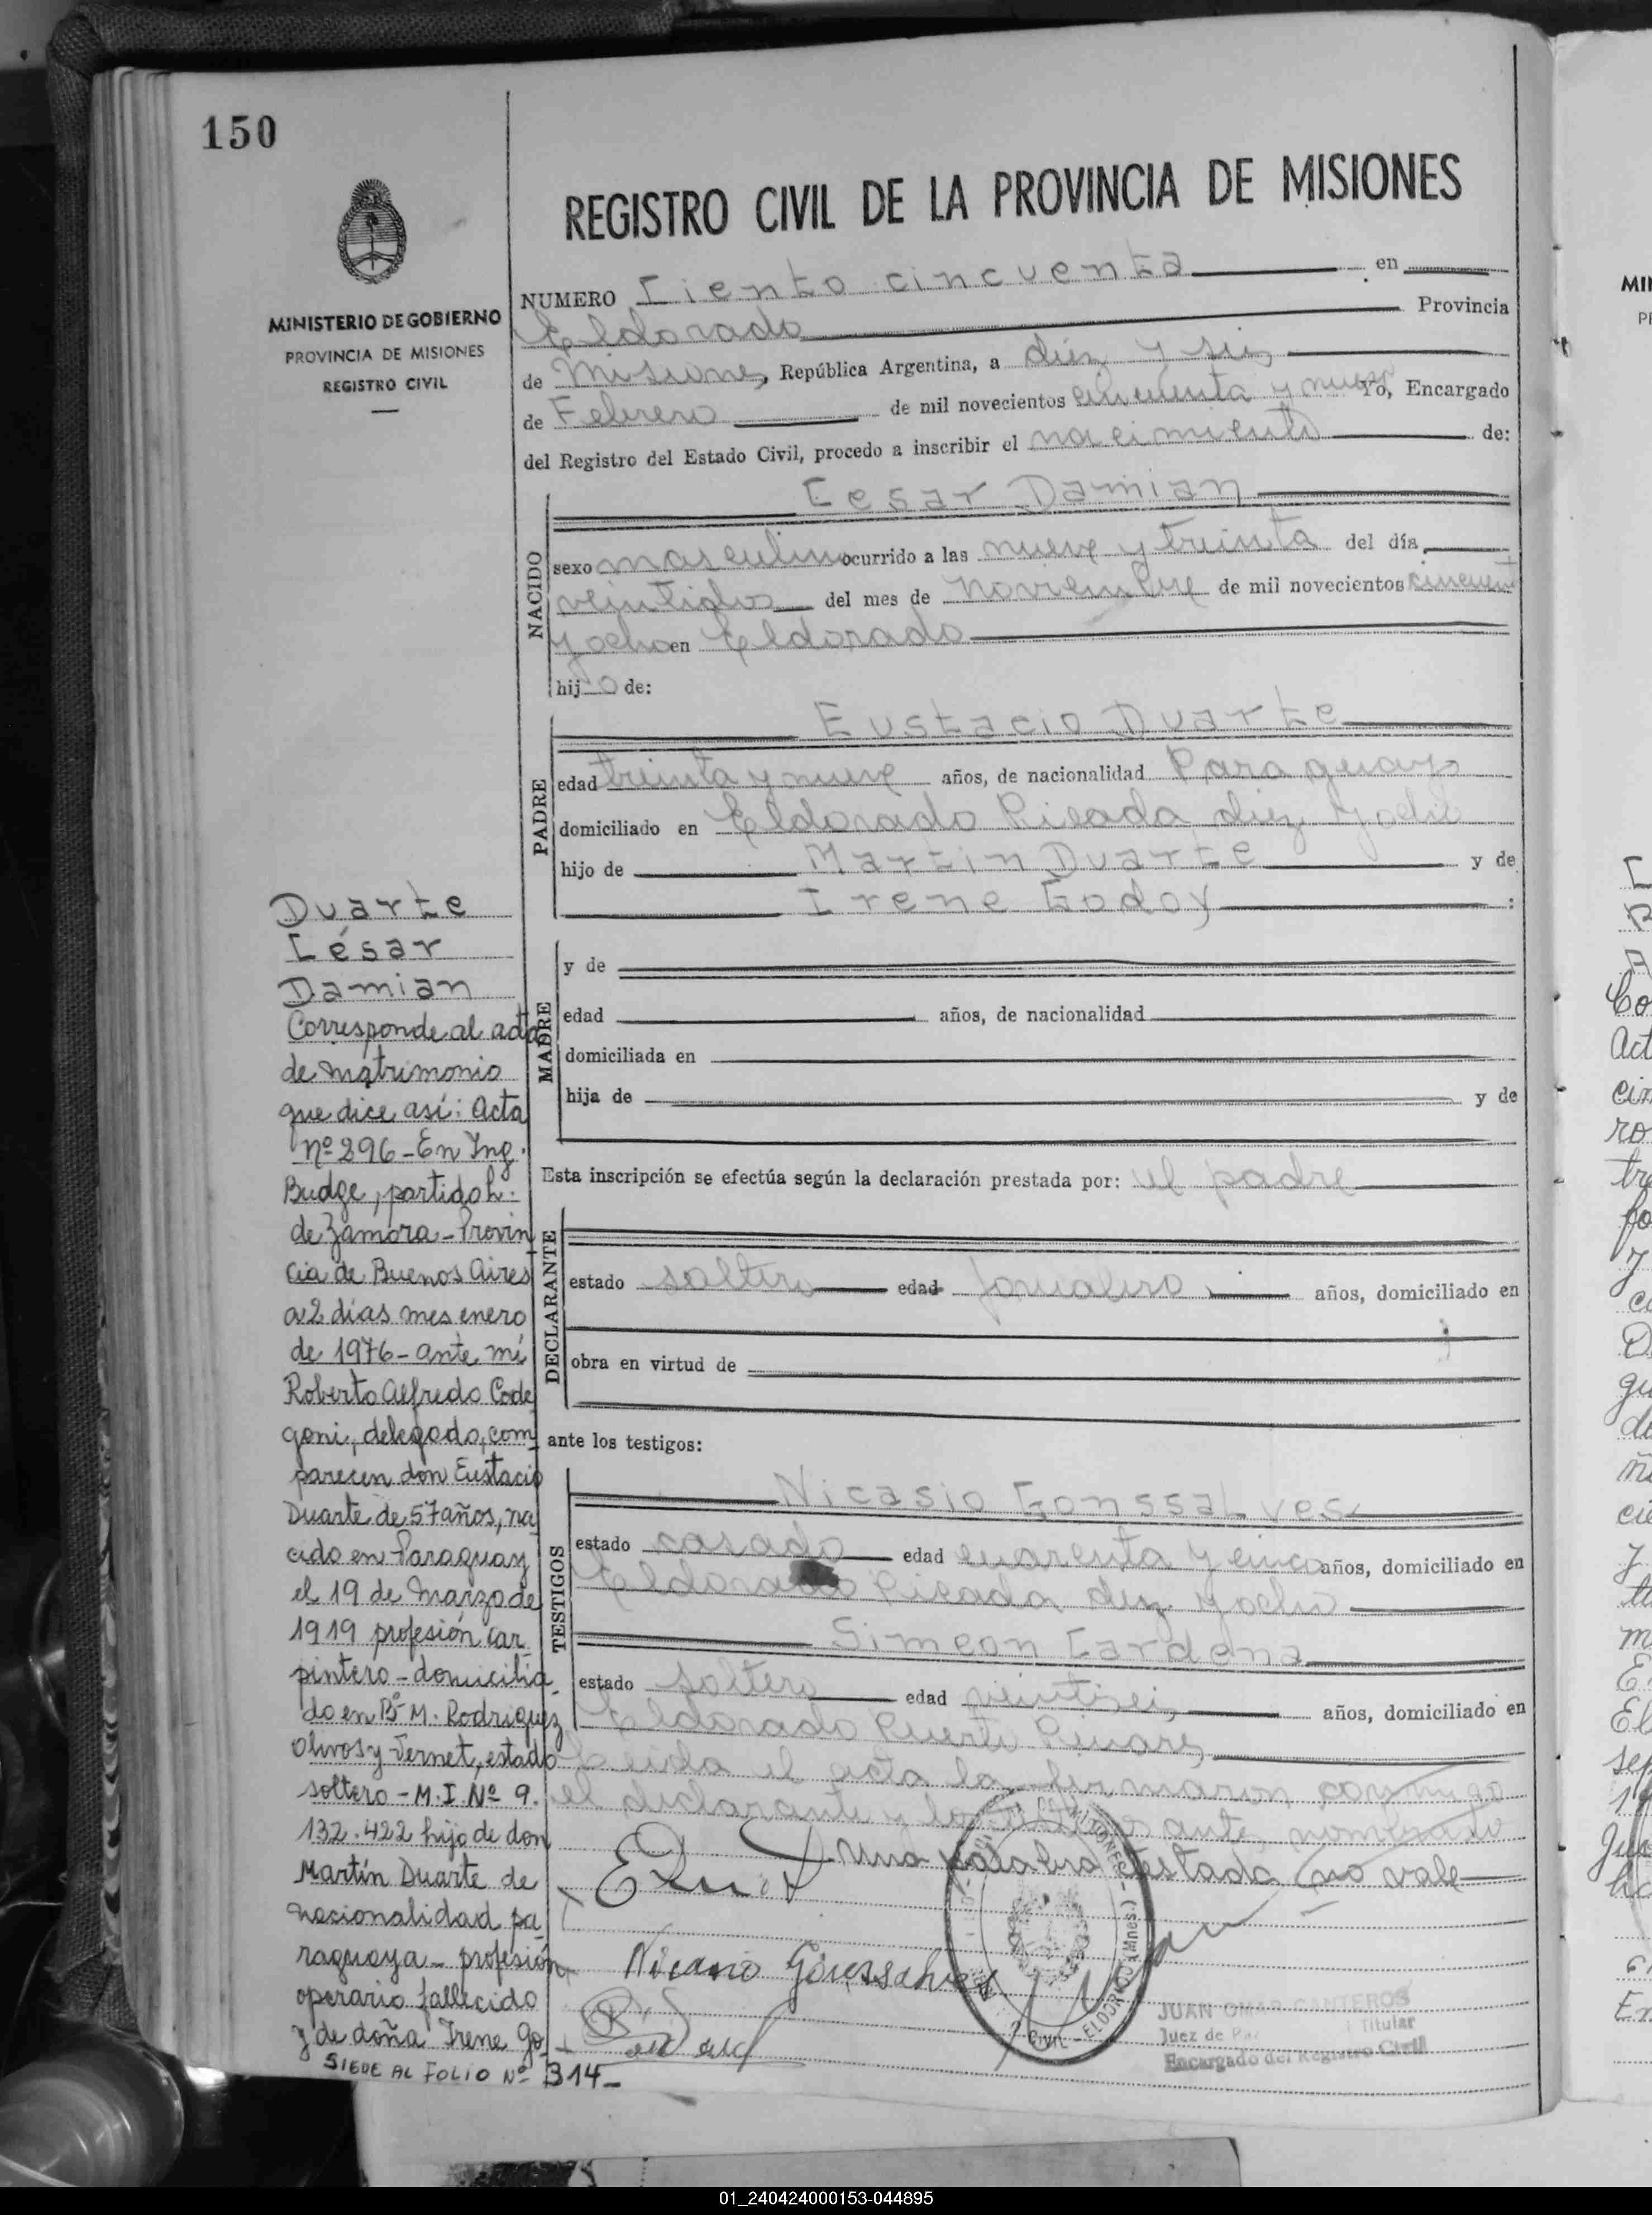 150
REGISTRO CIVIL DE LA PROVINCIA DE MISIONES
MINISTERIO DE GOBIERNO
PROVINCIA DE MISIONES
REGISTRO CIVIL
NUMERO Ciento cincuenta en
Eldorado Provincia
de Misiones, República Argentina, a diez y seis
de Febrero de mil novecientos cincuenta y nueve Yo, Encargado
del Registro del Estado Civil, procedo a inscribir el nacimiento de:
NACIDO
Cesar Damian
sexo masculino ocurrido a las nueve y treinta del día
veintidos del mes de Noviembre de mil novecientos cincuent
y ocho en Eldorado
hijo de:
PADRE
Eustacio Duarte
edad treinta y nueve años, de nacionalidad Paraguayo
domiciliado en Eldorado Picada diez y ocho
hijo de Martin Duarte y de
Irene Godoy :
MADRE
y de
edad años, de nacionalidad
domiciliada en
hija de y de
Esta inscripción se efectúa según la declaración prestada por: el padre
DECLARANTE
estado soltero edad Jornalero años, domiciliado en
obra en virtud de
ante los testigos:
TESTIGOS
Nicasio Gonssalves
estado casado edad cuarenta y cinco años, domiciliado en
Eldorado Picada diez y ocho
Simeon Cardena
estado soltero edad veintiseis años, domiciliado en
Eldorado Puerto Pinares
Leida el acta la firmaron conmigo
el declarante y los testigos antes nombrado
una palabra testada no vale
Nicasio Gonssalves
CIVIL - ELDORADO (Mnes.)
JUAN OMAR CANTEROS
Juez de Titular
Encargado del Registro Civil
Duarte
César
Damian
Corresponde al acta
de matrimonio
que dice así: Acta
Nº 296 - En Ing.
Budge, partido L.
de Zamora - Provin
cia de Buenos Aires
a 2 días mes enero
de 1976 - ante mí
Roberto Alfredo Code
goni, delegado, com
parecen don Eustacio
Duarte de 57 años, na
cido en Paraguay
el 19 de Marzo de
1919 profesión car
pintero - domicilia
do en Bº M. Rodriguez
Olivos y Vernet, estado
soltero - M.I. Nº 9.
132.422 hijo de don
Martín Duarte de
nacionalidad pa
raguaya - profesión
operario fallecido
y de doña Irene Go
SIEUE AL FOLIO Nº 314-
01_240424000153-044895